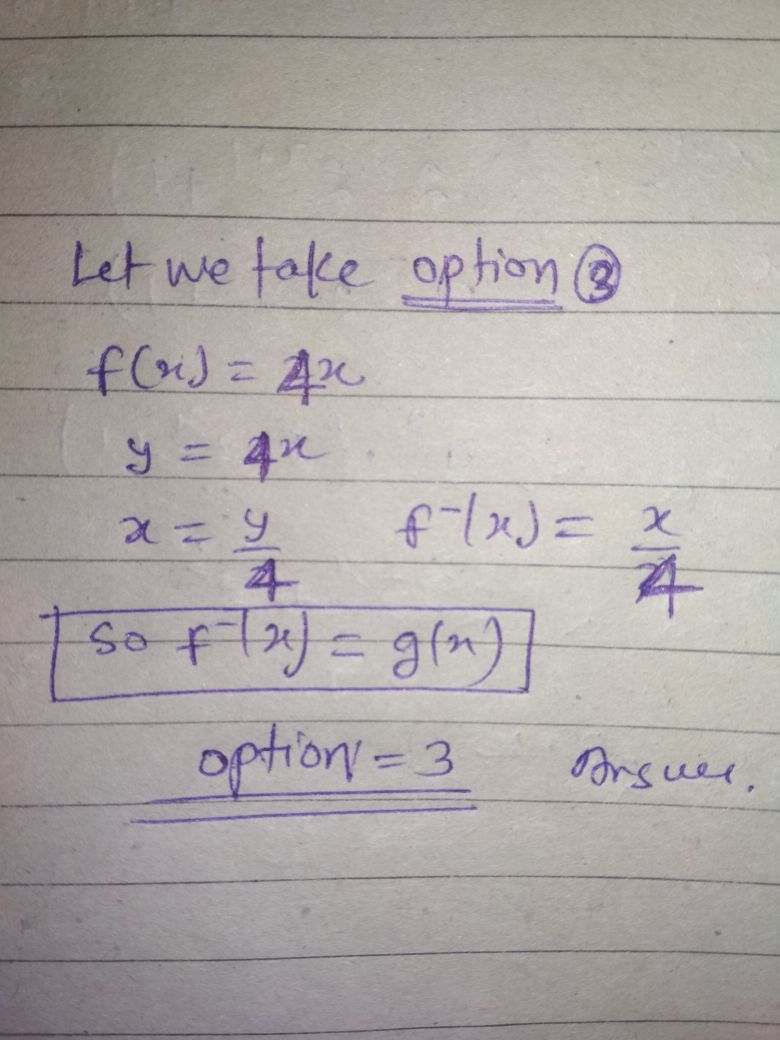 Let we take option ③
f(x) = 4x
y = 4x
x = y/4 f⁻¹(x) = x/4
So f⁻¹(x) = g(x)
option = 3 Answer.